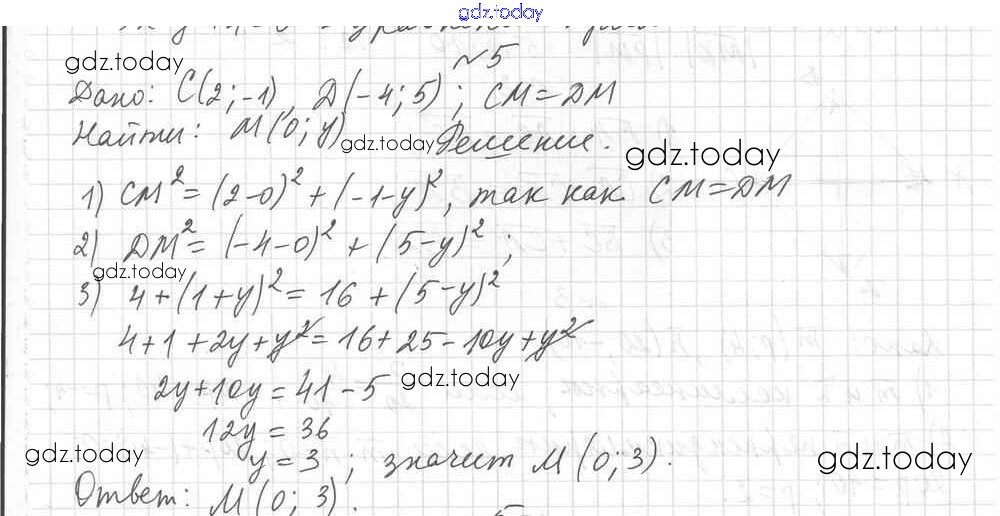 gdz.today
№5
gdz.today
Дано: C(2; -1), D(-4; 5); CM = DM
Найти: M(0; y) gdz.today Решение.
gdz.today
1) CM² = (2-0)² + (-1-y)², так как CM = DM
2) DM² = (-4-0)² + (5-y)²;
gdz.today
3) 4 + (1+y)² = 16 + (5-y)²
4+1+2y+y² = 16+25-10y+y²
2y+10y = 41-5 gdz.today
12y = 36
gdz.today y = 3; значит M(0; 3). gdz.today
Ответ: M(0; 3).